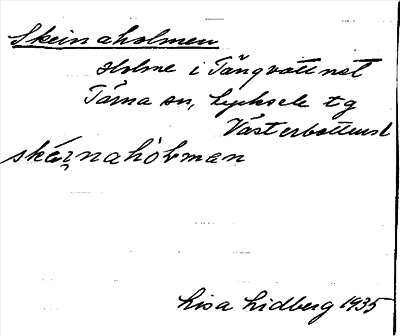 Skeinaholmen
Holme i Tängvattnet
Tärna sn, Lycksele tg
Västerbottensl
skéi̯nahòlman
Lisa Lidberg 1935